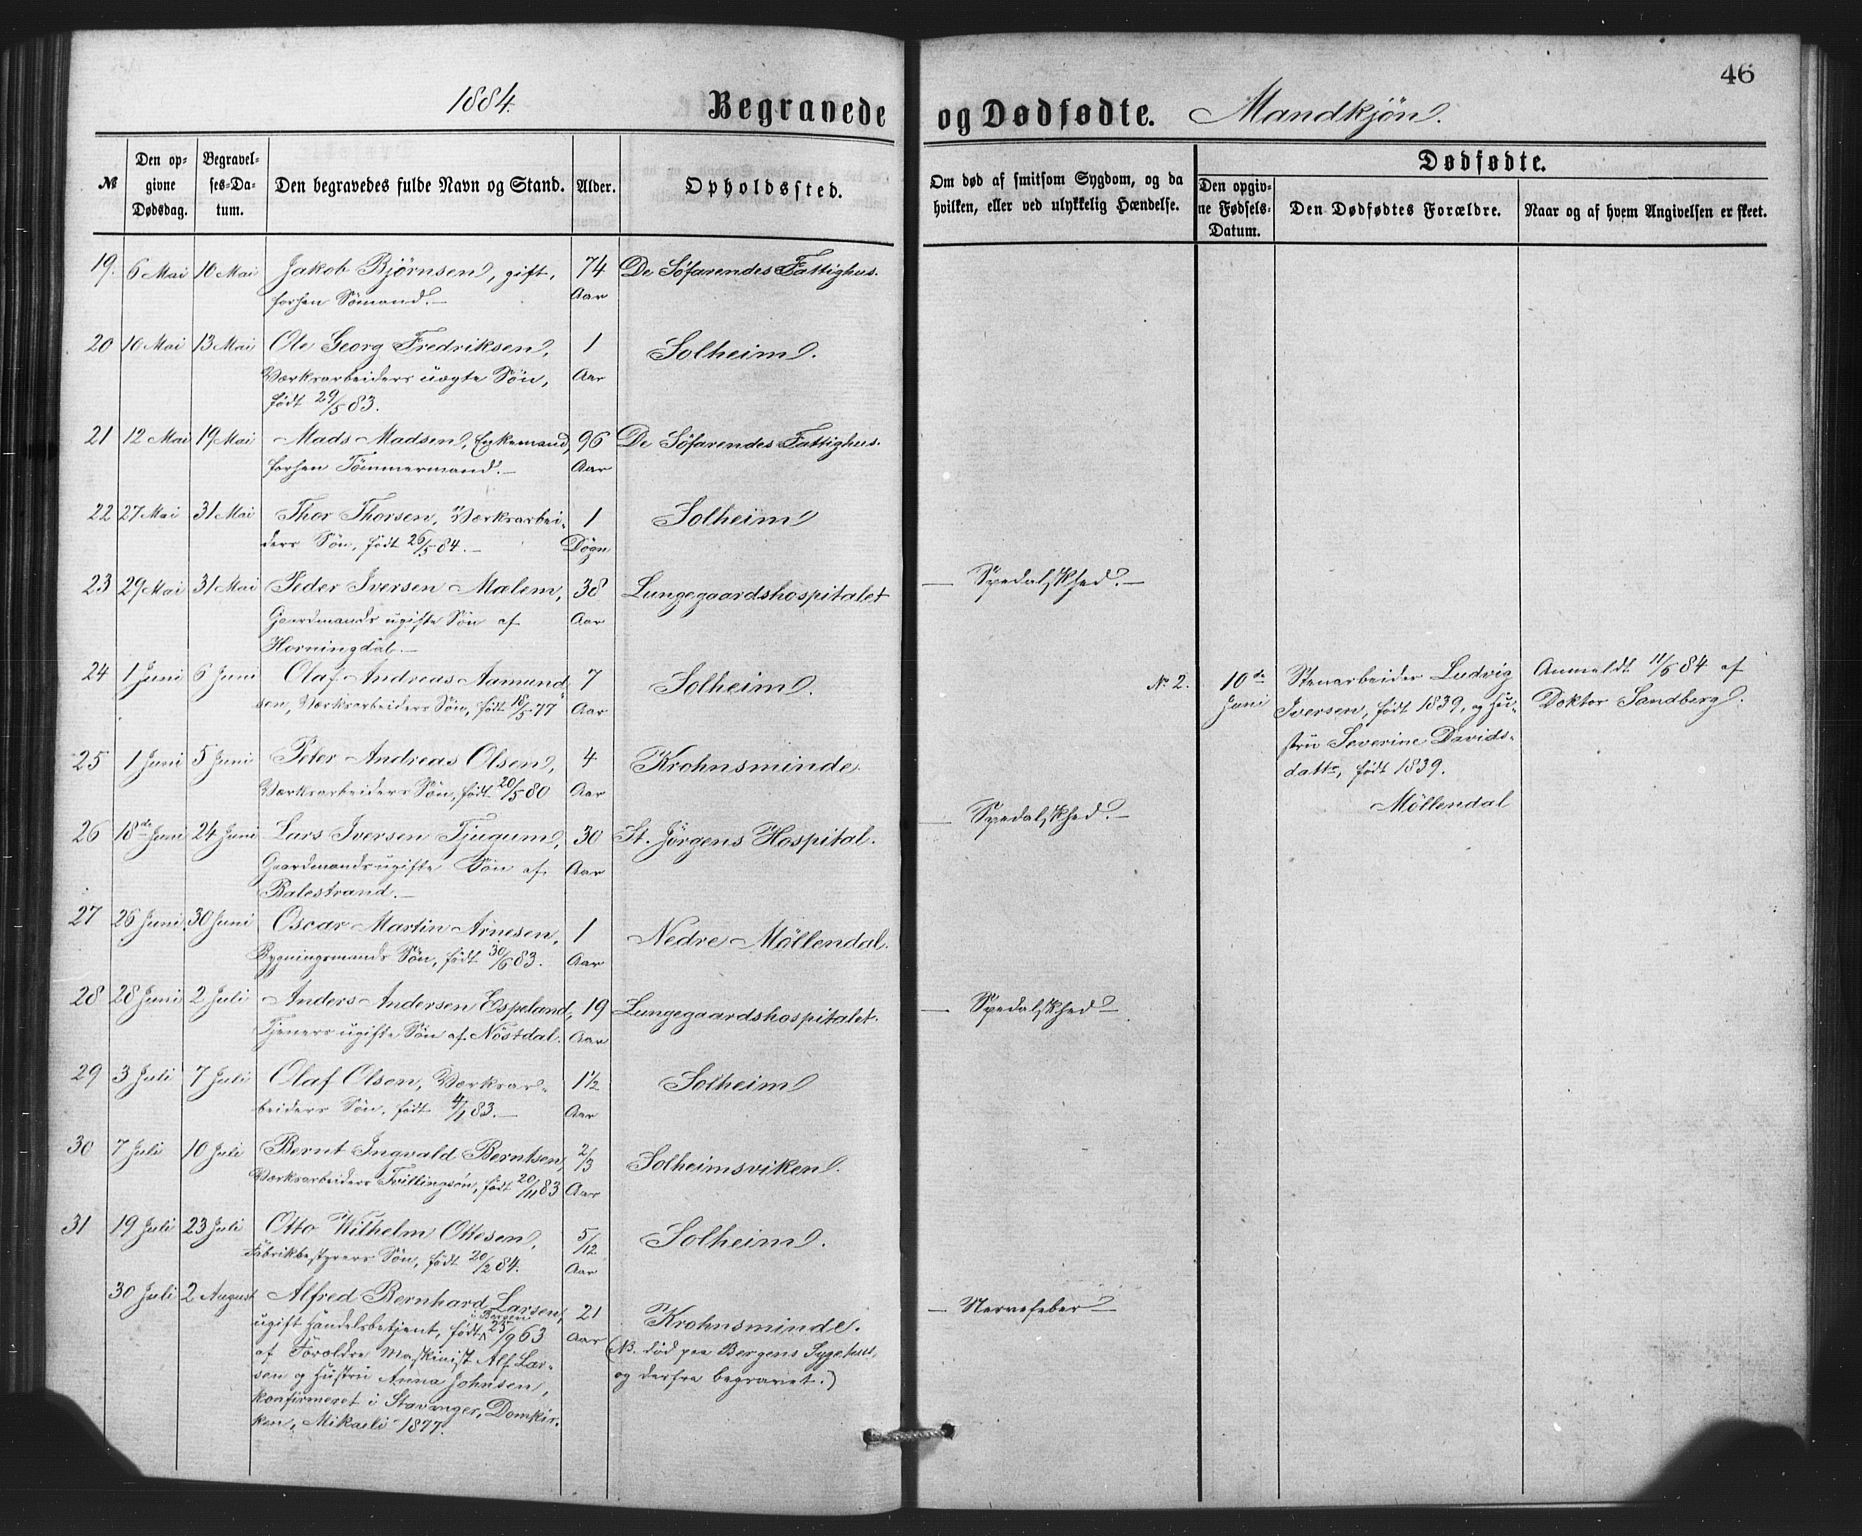 46
1884.
Begravede og Dødfødte. Mandkjön.
№
Den op-
givne
Dødsdag.
Begravel-
ses-Da-
tum.
Den begravedes fulde Navn og Stand.
Alder.
Opholdssted.
Om død af smitsom Sygdom, og da
hvilken, eller ved ulykkelig Hændelse.
Dødfødte.
Den opgiv-
ne Fødsels-
Datum.
Den Dødfødtes Forældre.
Naar og af hvem Angivelsen er skeet.
19. 6 Mai 10 Mai Jakob Bjørnsen, gift, 74 De Söfarendes Fattighus.
forhen Sömand. — Aar
20 10 Mai 13 Mai Ole Georg Fredriksen, 1 Solheim.
Værksarbeiders uægte Sön, Aar
født 29/5 83.
21 12 Mai 19 Mai Mads Madsen, Enkemand, 96 De Söfarendes Fattighus.
forhen Tömmermand. — Aar
22 27 Mai 31 Mai Thor Thorsen, Værksarbei- 1 Solheim
ders Sön, født 26/5 84. — Døgn
23 29 Mai 31 Mai Peder Iversen Mælem, 38 Lungegaardshospitalet — Spedalskhed. —
Gaardmands ugifte Sön af Aar
Horningdal. —
24 1 Juni 6 Juni Olaf Andreas Aamund- 7 Solheim.
sen, Værksarbeiders Sön, født 18/5 77 Aar
No 2. 10de Juni
Stenarbeider Ludvig
Iversen, født 1839, og Hu-
stru Severine Davids-
dattr, født 1839.
Möllendal
Anmeldt 11/6 84 af
Doktor Sandberg.
25 1 Juni 5 Juni Peter Andreas Olsen, 4 Krohnsminde.
Værksarbeiders Sön, født 20/5 80 Aar
26 18de Juni 24 Juni Lars Iversen Tjugum, 30 St. Jörgens Hospital. — Spedalskhed. —
Gaardmands ugifte Sön af Aar
Balestrand. —
27 26 Juni 30 Juni Oscar Martin Arnesen, 1 Nedre Möllendal.
Bygningsmands Sön, født 30/6 83. Aar
28 28 Juni 2 Juli Anders Andersen Espeland, 19 Lungegaardshospitalet. — Spedalskhed —
Tjeners ugifte Sön af Nöstdal. Aar
29 3 Juli 7 Juli Olaf Olsen, Værksar- 1½ Solheim
beiders Sön, født 4/1 83. — Aar
30 7 Juli 10 Juli Bernt Ingvald Berntsen, 2/3 Solheimsviken.
Værksarbeiders Tvillingsön, født 20/11 83 Aar
31 19 Juli 23 Juli Otto Wilhelm Ottesen, 5/12 Solheim.
Fabrikbestyrers Sön, født 20/2 84. Aar
30 Juli 2 August Alfred Bernhard Larsen, 21 Krohnsminde. — Nervefeber —
ugift Handelsbetjent, født i Bergen 25/9 63 Aar (NB. död paa Bergens Sygehus,
af Forældre Maskinist Alf Lar- og derfra begravet.)
sen og Hustru Anna Johnsen,
konfirmeret i Stavanger, Domkir-
ken, Mikaeli 1877.